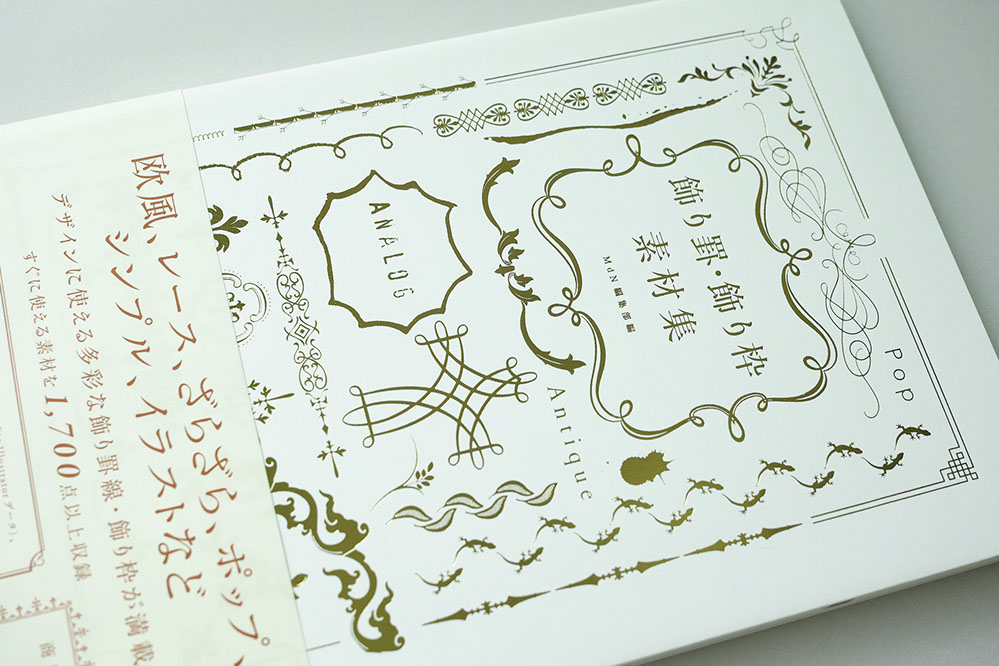 飾り罫・飾り枠
素材集
MdN編集部編
ANALOG
Antique
pop
欧風、レース、ざらざら、ポップ、
シンプル、イラストなど
デザインに使える多彩な飾り罫線・飾り枠が満載
すぐに使える素材を1,700点以上収録